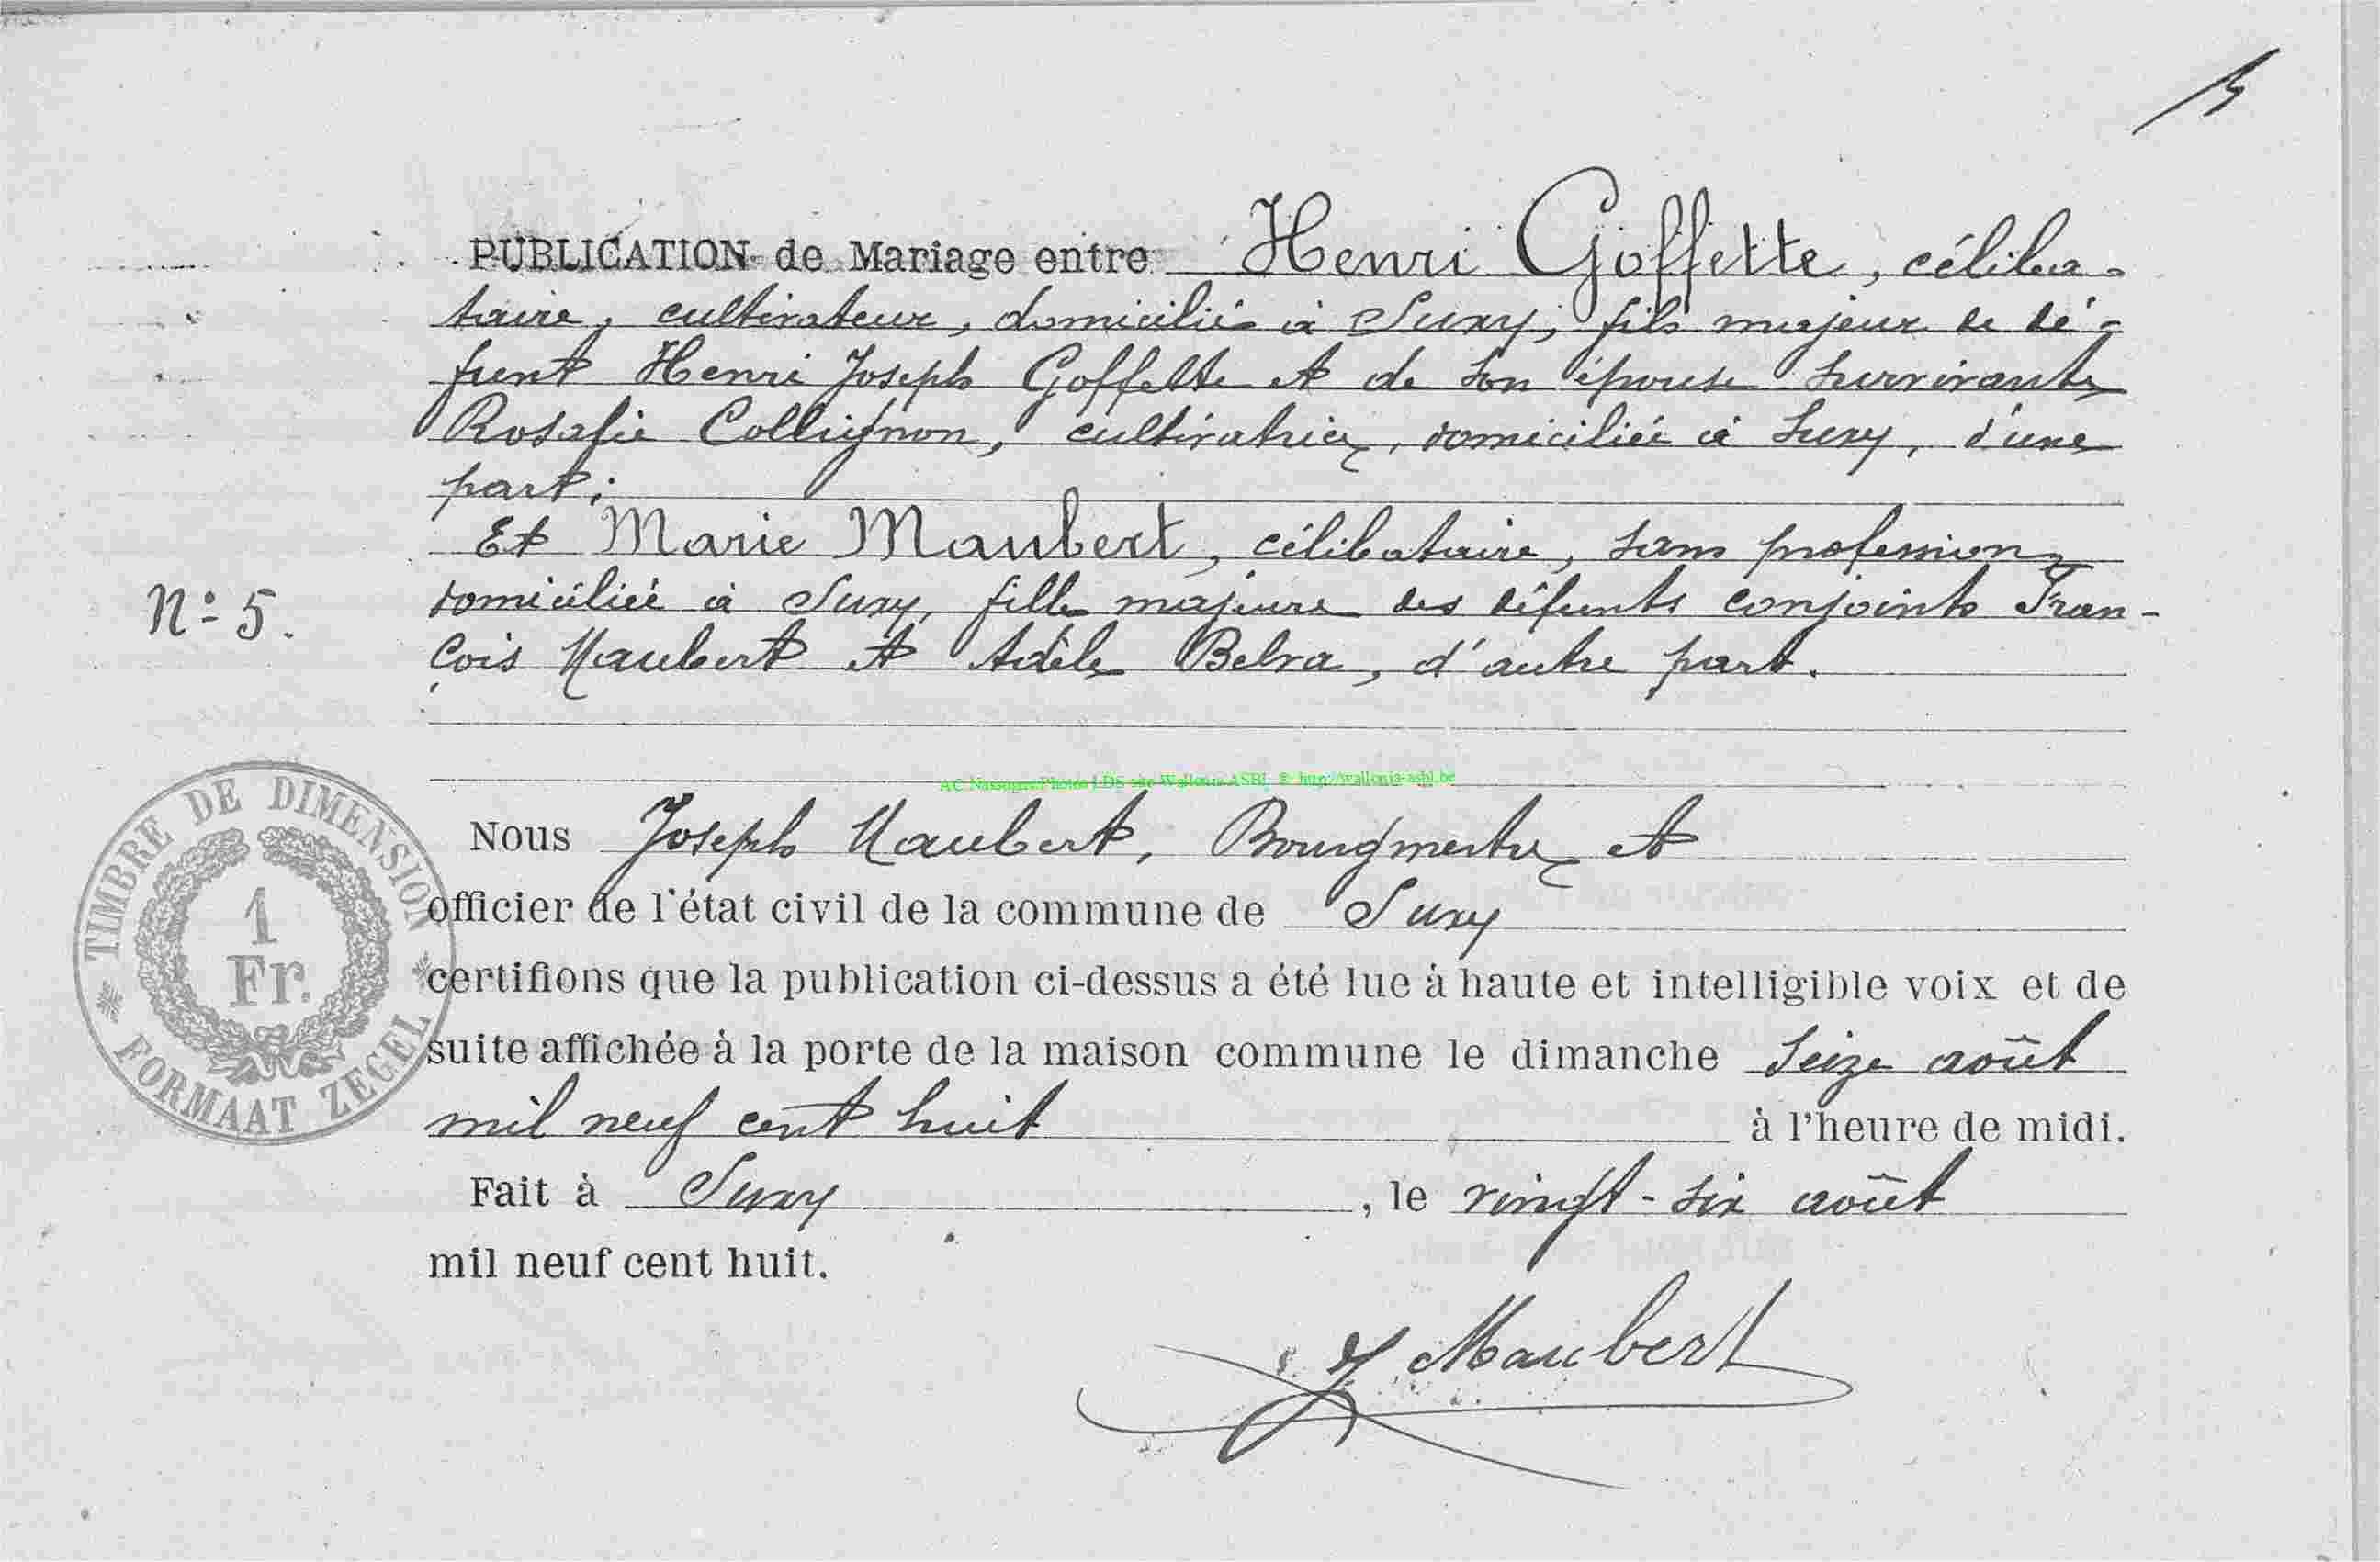 PUBLICATION de Mariage entre Henri Goffette, céliba-
taire, cultivateur, domicilié à Suxy, fils majeur de dé-
funt Henri Joseph Goffette et de son épouse survivante
Rosalie Collignon, cultivatrice, domiciliée à Suxy, d'une
part;
Et Marie Maubert, célibataire, sans profession,
N° 5.
domiciliée à Suxy, fille majeure des défunts conjoints Fran-
çois Maubert et Adèle Belva, d'autre part.
AC Nassogne Photos LDS site Wallonia ASBL © http://wallonia-asbl.be
TIMBRE DE DIMENSION
1
Fr.
FORMAAT ZEGEL
Nous Joseph Maubert, Bourgmestre et
officier de l'état civil de la commune de Suxy
certifions que la publication ci-dessus a été lue à haute et intelligible voix et de
suite affichée à la porte de la maison commune le dimanche seize août
mil neuf cent huit à l'heure de midi.
Fait à Suxy, le vingt-six août
mil neuf cent huit.
J Maubert